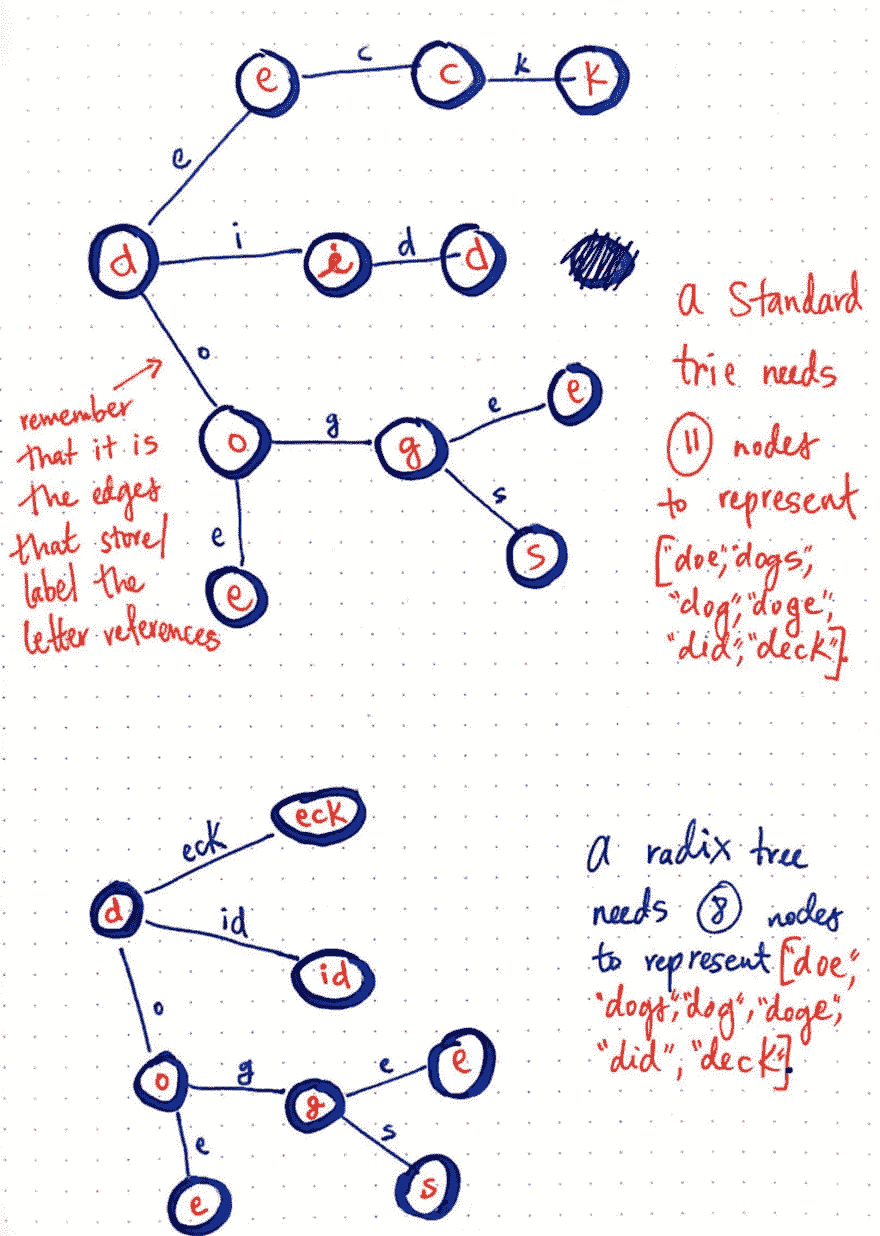 e c c k k
e
d i i d d
o
o g g e e
s
e s
e
remember
that it is
the edges
that store/
label the
letter references
a Standard
trie needs
11 nodes
to represent
["doe","dogs",
"dog","doge",
"did","deck"].
eck eck
d id
id
o
o g g e e
s
e s
e
a radix tree
needs 8 nodes
to represent ["doe",
"dogs","dog","doge",
"did","deck"].